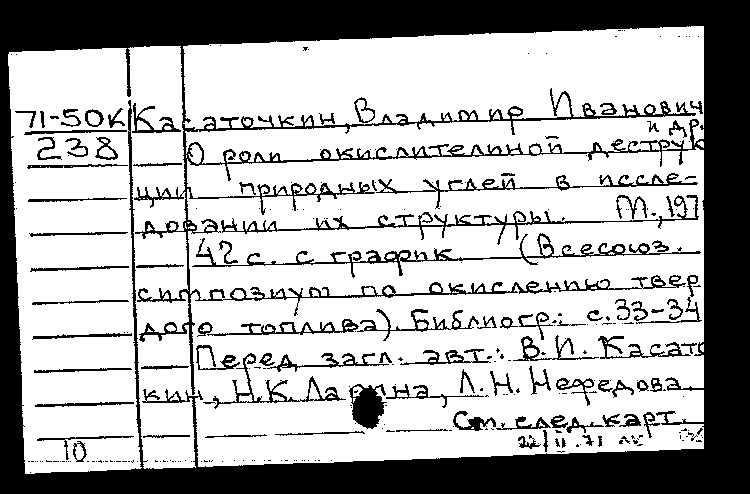 71-50К Касаточкин, Владимир Иванович
и др.
238 О роли окислителиной деструк
ции природных углей в иссле-
довании их структуры. М., 197
42 с. с график. (Всесоюз.
симпозиум по окислению твер
дого топлива). Библиогр.: с. 33-34
Перед загл. авт.: В. И. Касато
кин, Н. К. Ларина, Л. Н. Нефедова.
См. след. карт.
10 22/II.71